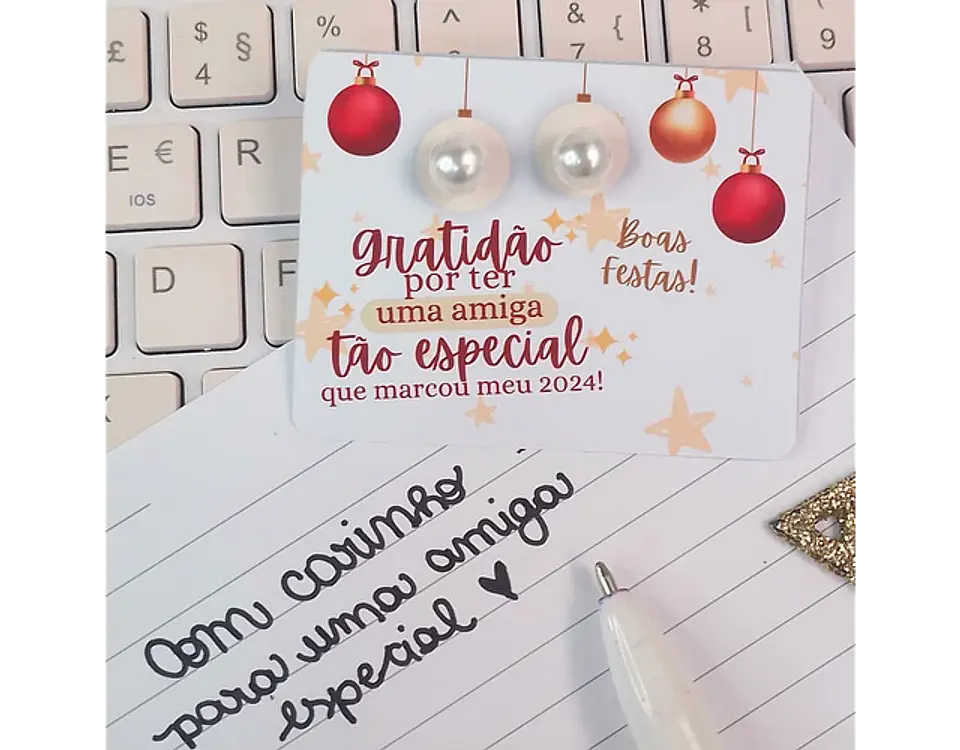 £
$ §
4
%
^
& {
7
* [
8
9
E €
IOS
R
D
F
gratidão
por ter
uma amiga
tão especial
que marcou meu 2024!
Boas
Festas!
Com carinho
para uma amiga
especial